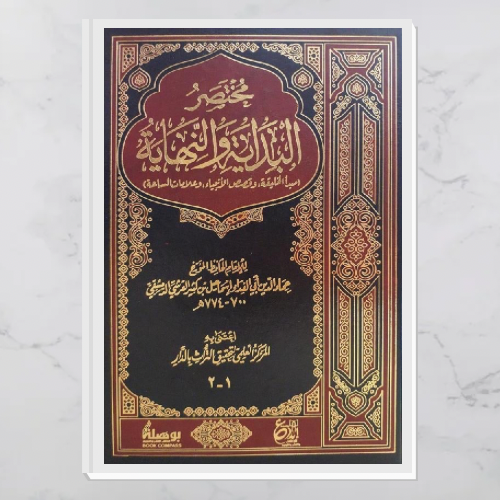 مختصر
البداية والنهاية
(مبدأ الخليقة، وقصص الأنبياء، وعلامات الساعة)
للإمام الحافظ المؤرخ
عماد الدين أبي الفداء إسماعيل بن كثير القرشي الدمشقي
٧٠٠-٧٧٤هـ
اعتنى به
المركز العلمي لتحقيق التراث بالدار
١-٢
بوصلة
BOOK COMPASS